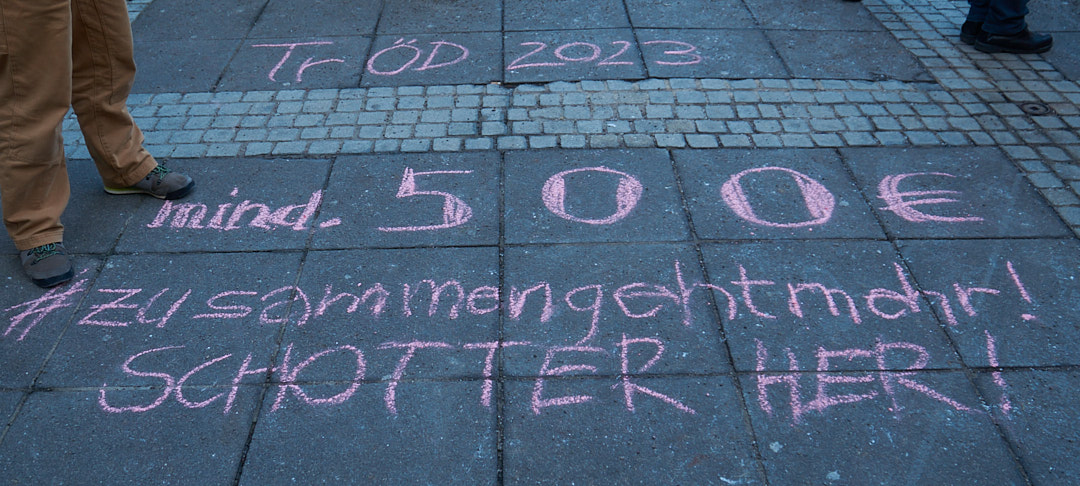 Tr ÖD 2023
mind. 500 €
#zusammengehtmehr!
SCHOTTER HER!